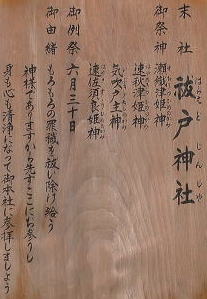 末社 祓戸神社
はらえど じんじゃ
御祭神 瀬織津姫神
速秋津姫神
気吹戸主神
速佐須良姫神
御例祭 六月三十日
御由緒 もろもろの罪穢を祓い除け給う
神様でありますから先ずここにお参りし
身も心も清浄になって御本社に参拝しましょう